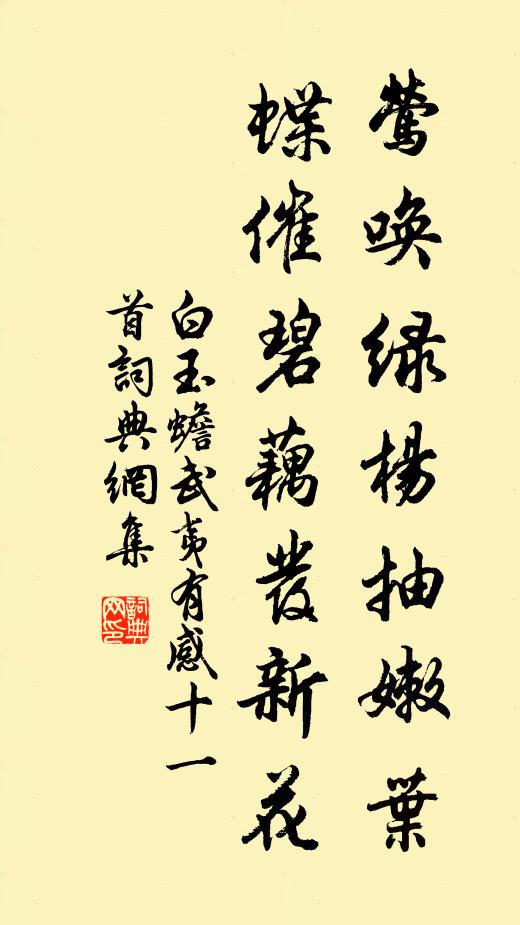 鶯喚緑楊抽嫩葉
蝶催碧藕發新花
白玉蟾武夷有感十一
首詞典網集
詞典
网印